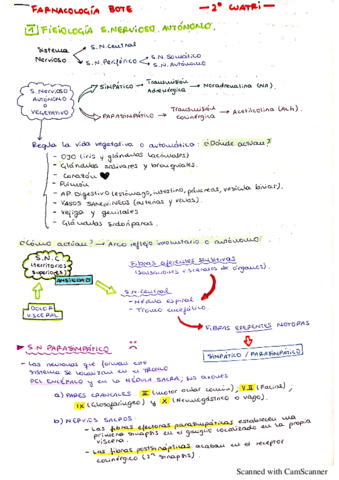 FARMACOLOGÍA BOTE — 2º CUATRI —
1 FISIOLOGÍA S.NERVIOSO AUTÓNOMO.
Sistema Nervioso
S.N. Central
S.N. Periférico
S.N. Somático
S.N. Autónomo
S. NERVIOSO AUTÓNOMO O VEGETATIVO
SIMPÁTICO → Transmisión Adrenérgica → Noradrenalina (NA).
PARASIMPÁTICO → Transmisión colinérgica → Acetilcolina (Ach).
Regula la vida vegetativa o automática: ¿Dónde actúan?
- OJO (iris y glándulas lacrimales)
- Glándulas salivares y bronquiales.
- Corazón
- Pulmón
- AP. Digestivo (estómago, intestino, páncreas, vesícula biliar).
- VASOS SANGUÍNEOS (arterias y venas).
- Vejiga y genitales
- Glándulas sudoríparas.
¿Cómo actúan? → Arco reflejo involuntario o autónomo.
S.N.C (territorios superiores)
ANSIEDAD
DOLOR VISCERAL
Fibras aferentes sensitivas
(Sensaciones viscerales de órganos).
S.N. Central
- Médula espinal
- Tronco encefálico
FIBRAS EFERENTES MOTORAS
SIMPÁTICO / PARASIMPÁTICO
S.N PARASIMPÁTICO
- Las neuronas que forman este
sistema se localizan en el TRONCO
DEL ENCÉFALO y en la MÉDULA SACRA, sus axones
a) PARES CRANEALES: III (motor ocular común), VII (Facial),
IX (Glosofaríngeo) y X (Neumogástrico o vago).
b) NERVIOS SACROS:
- Las fibras efectoras parasimpáticas establecen una
primera sinapsis en el ganglio localizado en la propia
víscera.
- Las fibras postsinápticas acaban en el receptor
colinérgico (2ª sinapsis).
Scanned with CamScanner